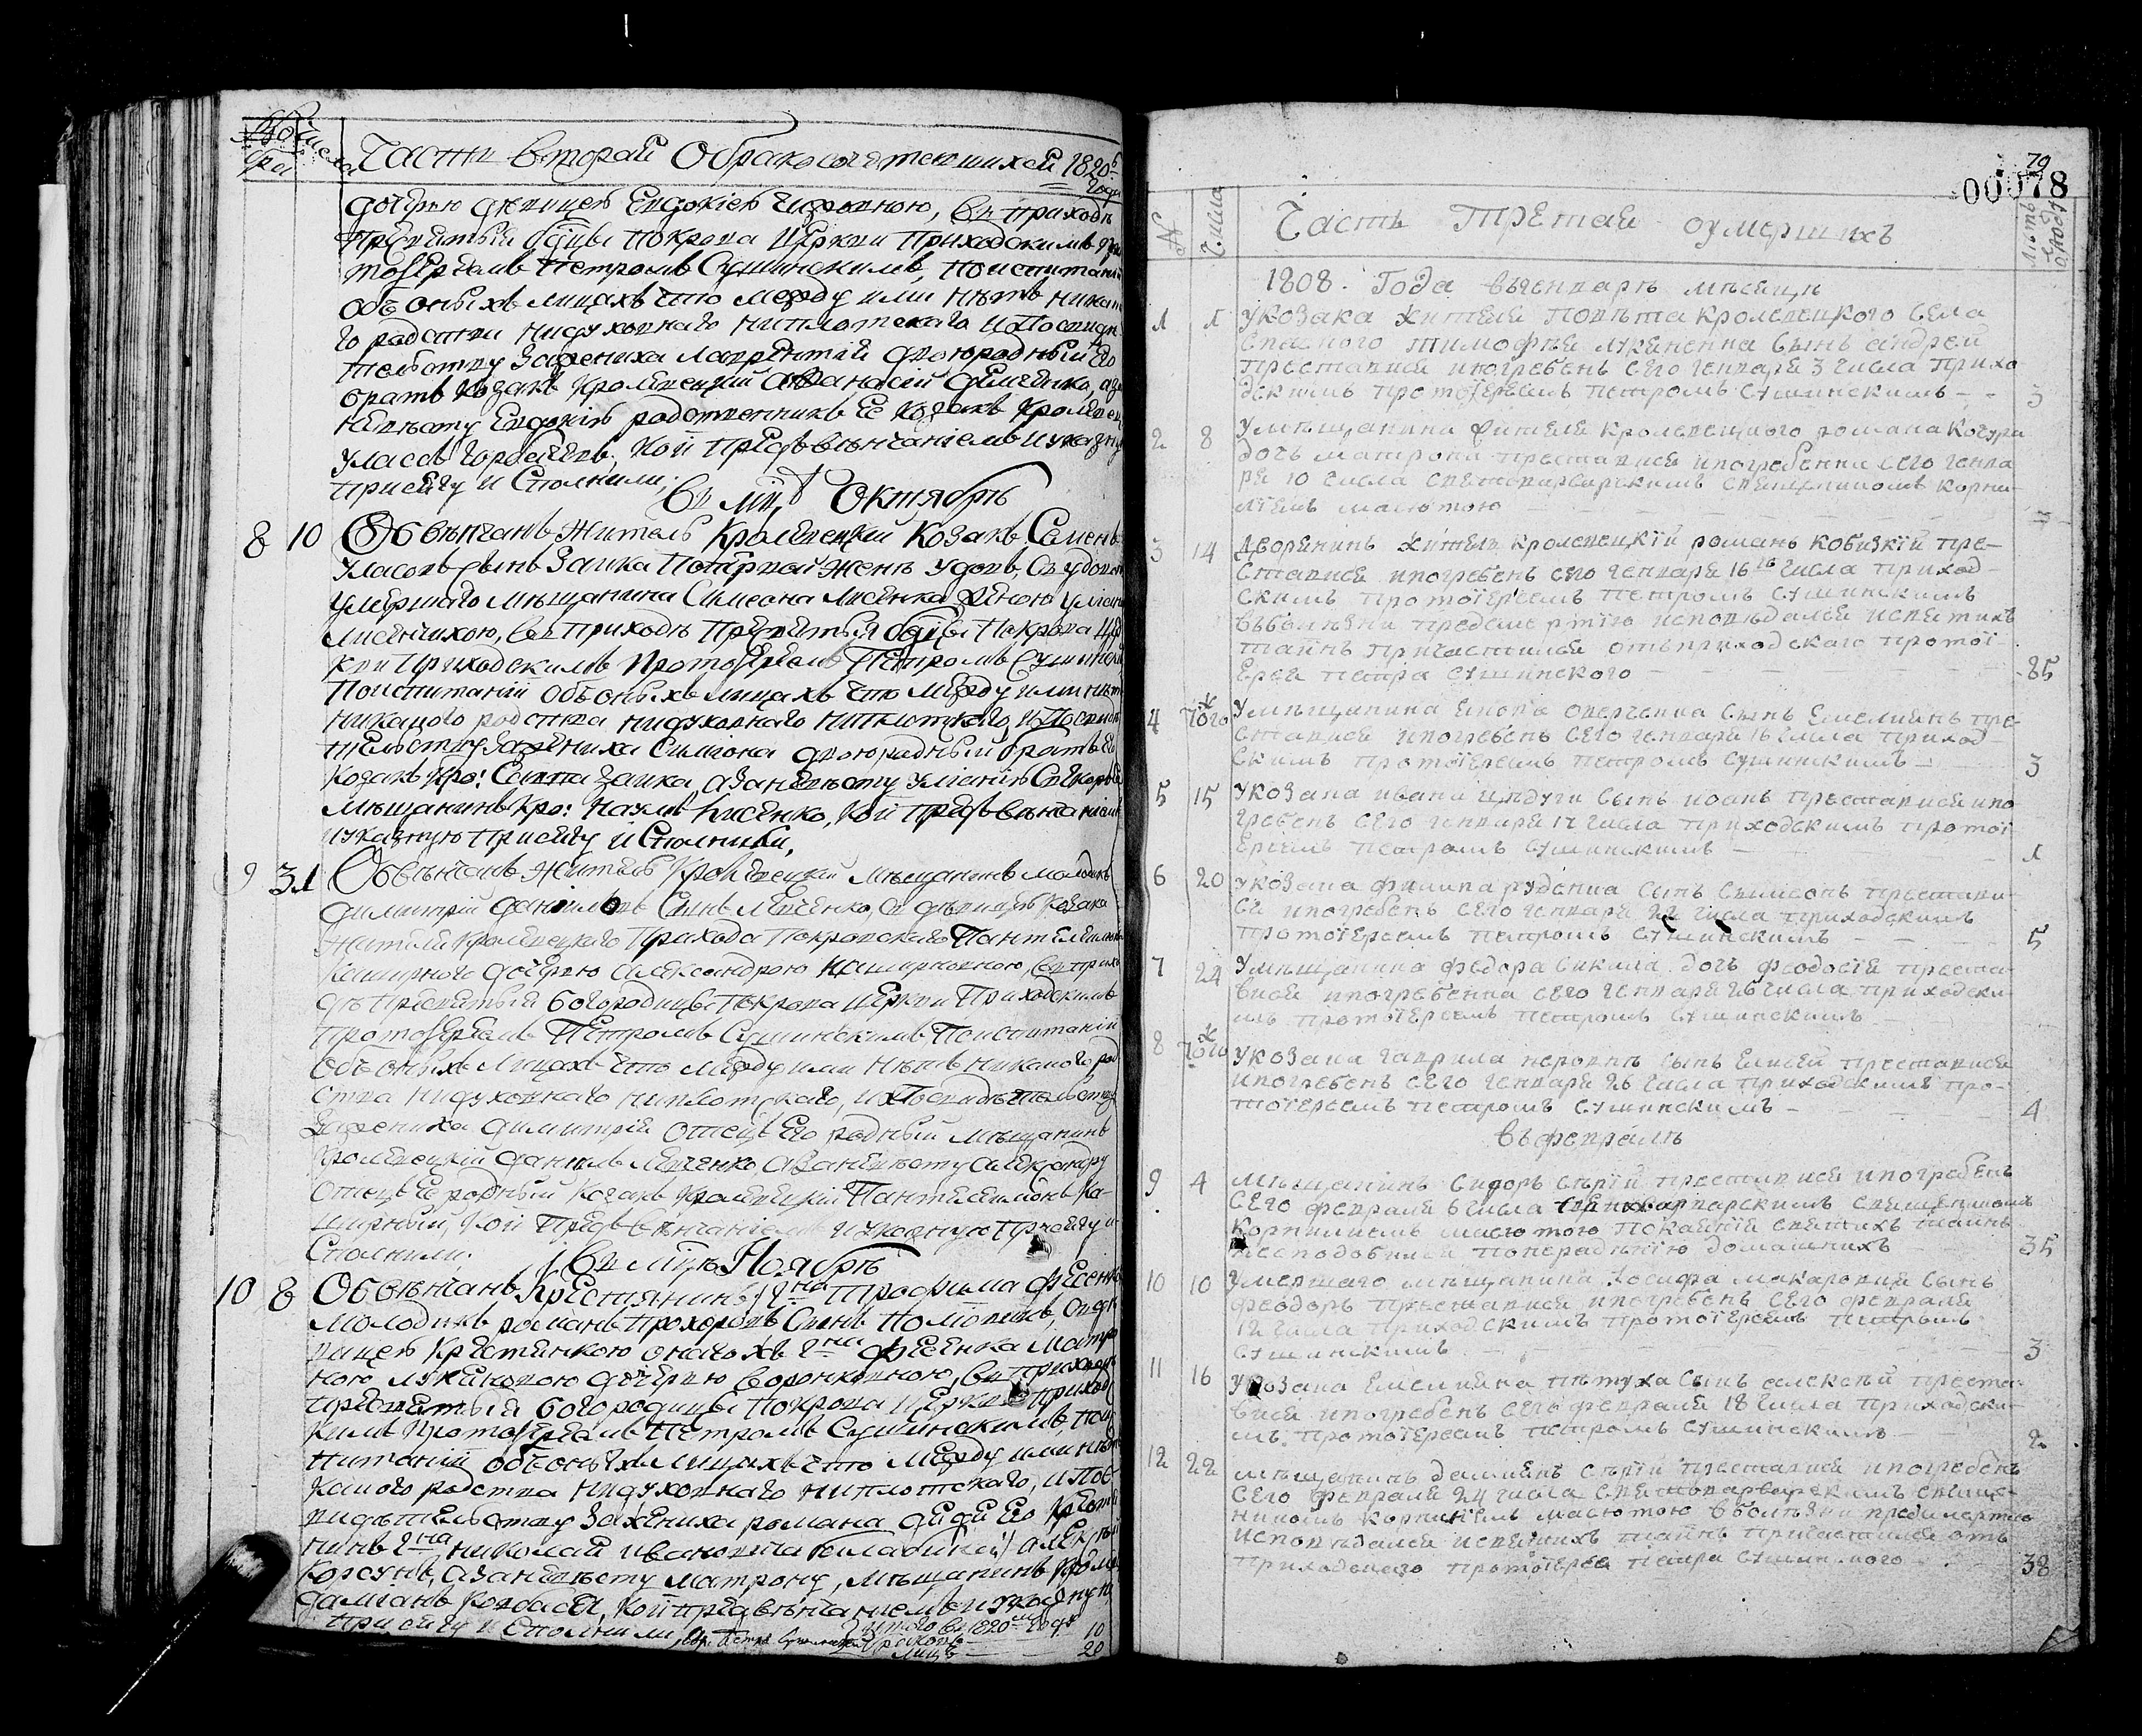 Части второй О бракосочетавшихся 1820го года
дочерью девицею Евдокиею, въ приходѣ
Пресвятыя Бцы Покрова церкви Приходскимъ про
тоіереемъ Петромъ Сушинскимъ, по испитаніи
объ оныхъ лицахъ что между ими нѣтъ никако
го родства ни духовнаго ни плотскаго и по свидѣ
тельству за жениха Лаврентія двоюродный его
братъ козакъ Кролевецкій Афанасій Демченко, а за
невѣсту Евдокію родственникъ ее козакъ Кролевец
Уласъ кои предъ вѣнчаніемъ и указную
присягу исполнили;
Въ мцѣ Октябрѣ
8 10 Обвѣнчанъ житель Кролевецкій козакъ Семенъ
Уласовъ сынъ Заика по первой женѣ удовъ, съ удовою
умершаго мѣщанина Симеона Лисенка женою
Лисенчихою, въ приходѣ Пресвятыя Бцы Покрова цер
кви приходскимъ протоіереемъ Петромъ Сушинским
по испитаніи объ оныхъ лицахъ что между ими нѣтъ
никакого родства ни духовнаго ни плотскаго, и по свидѣ
тельству за жениха Симеона двоюродный братъ его
козакъ Кро: Савва Заика, а за невѣсту
мѣщанинъ Кро: Наумъ Лисенко, кои предъ вѣнчаніемъ
и указную присягу исполнили,
9 31 Обвѣнчанъ житель Кролевецкій мѣщанинъ молодикъ
Димитрій Даниловъ сынъ Левченко, съ дѣвицею козака
жителя Кролевецкаго прихода Покровскаго Пантелеимона
Каширного дочерью Александрою Каширновною, въ прихо
дѣ Пресвятыя Богородицы Покрова церкви Приходскимъ
протоіереемъ Петромъ Сушинскимъ по испитаніи
объ оныхъ лицахъ что между ими нѣтъ никакого род
ства ни духовнаго ни плотскаго, и по свидѣтельству
за жениха Димитрія отецъ его родный мѣщанинъ
Кролевецкій Данилъ Левченко, а за невѣсту Александру
отецъ ее родный козакъ Кролевецкій Пантелеимонъ Ка-
ширный, кои предъ вѣнчаніемъ и указную присягу и
сполнили;
Въ мцѣ Ноябрѣ
10 8 Обвѣнчанъ крестянинъ гна Трофима Фесенка
молодикъ романъ Прохоровъ сынъ съ дѣ
вицею крестянкою онаго жъ гна Фесенка Матро
ною дочерью Воронковною, въ приходѣ
Пресвятыя Богородицы Покрова церкви приход
кимъ протоіереемъ Петромъ Сушинскимъ, по ис
питаніи объ оныхъ лицахъ что между ими нѣтъ
какого родства ни духовнаго ни плотскаго, и по с
видѣтельству за жениха романа дядя его крестя
нинъ гна Николая Ивановича Алексѣй
Корсунъ, а за невѣсту Матрону, мѣщанинъ Кроле
Даміанъ Колбаса, кои предъ вѣнчаніемъ и указную
присягу исполнили
Итого въ 1820мъ годѣ
браковъ 10
лицъ 20
79
00078
№ Числа Часть Третая оумершихъ Лѣтъ
1808. Года въ генварѣ мѣсяцѣ
1 1 У козака жителя повѣта Кролевецкого села
Спаского тимофѣя лукяненка сынъ андрей
преставися и погребенъ сего генваря 3 числа прихо
дскимъ протоіереемъ петромъ сушинскимъ — 3
2 8 У мѣщанина жителя кролевецкого романа Кочура
дочь матрона преставися и погребенна сего генва
ря 10 числа святоварварскимъ священникомъ корни
ліемъ масютою
3 14 Дворянинъ житель кролевецкій романъ кобизкій пре-
ставися и погребенъ сего генваря 16го числа приход-
скимъ протоіереемъ петромъ сушинскимъ
въ болѣзни предсмертію исповѣдался и святихъ
таинъ причастился отъ приходского протоі
ерея петра сушинского — 85
4 того ж У мѣщанина сынъ Емелиянъ пре-
ставися и погребенъ сего генваря 16 числа приход
скимъ протоіереемъ петромъ сушинскимъ — 3
5 15 У козака ивана сынъ иоанъ преставися и по
гребенъ сего генваря 17 числа приходскимъ протоі
ереемъ петромъ сушинскимъ — 1
6 20 У козака филипа руденка сынъ сымеонъ престави-
ся и погребенъ сего генваря 22 числа приходскимъ
протоіереемъ петромъ сушинскимъ — 5
7 24 У мѣщанина федора сикала дочь феодосія преста-
вися и погребенна сего генваря 26 числа приходски-
мъ протоіереемъ петромъ сушинскимъ
8 того ж У козака гаврила сынъ Елисей преставися
и погребенъ сего генваря 26 числа приходскимъ про-
тоіереемъ петромъ сушинскимъ — 4
въ февралѣ
9 4 Мѣщанинъ сидоръ сѣрій преставися и погребенъ
сего февраля 6 числа варварскимъ священникомъ
корнилиемъ масютою покаянія святихъ таинъ
несподобился понерадѣнію домашнихъ 35
10 10 Умершаго мѣщанина іосифа макаровия сынъ
феодоръ преставися и погребенъ сего февраля
12 числа приходскимъ протоіереемъ петромъ
сушинскимъ — 3
11 16 У козака Емелияна пѣтуха сынъ алексѣй преста-
вися и погребенъ сего февраля 18 числа приходски-
мъ протоіереемъ петромъ сушинскимъ — 2
12 22 Мѣщанинъ демиянъ сѣрій преставися и погребенъ
сего февраля 24 числа святоварварскимъ свяще-
никомъ корниліемъ масютою в болѣзни предсмертію
исповѣдался и святихъ таинъ причастился отъ
приходского протоіерея петра сушинского — 38